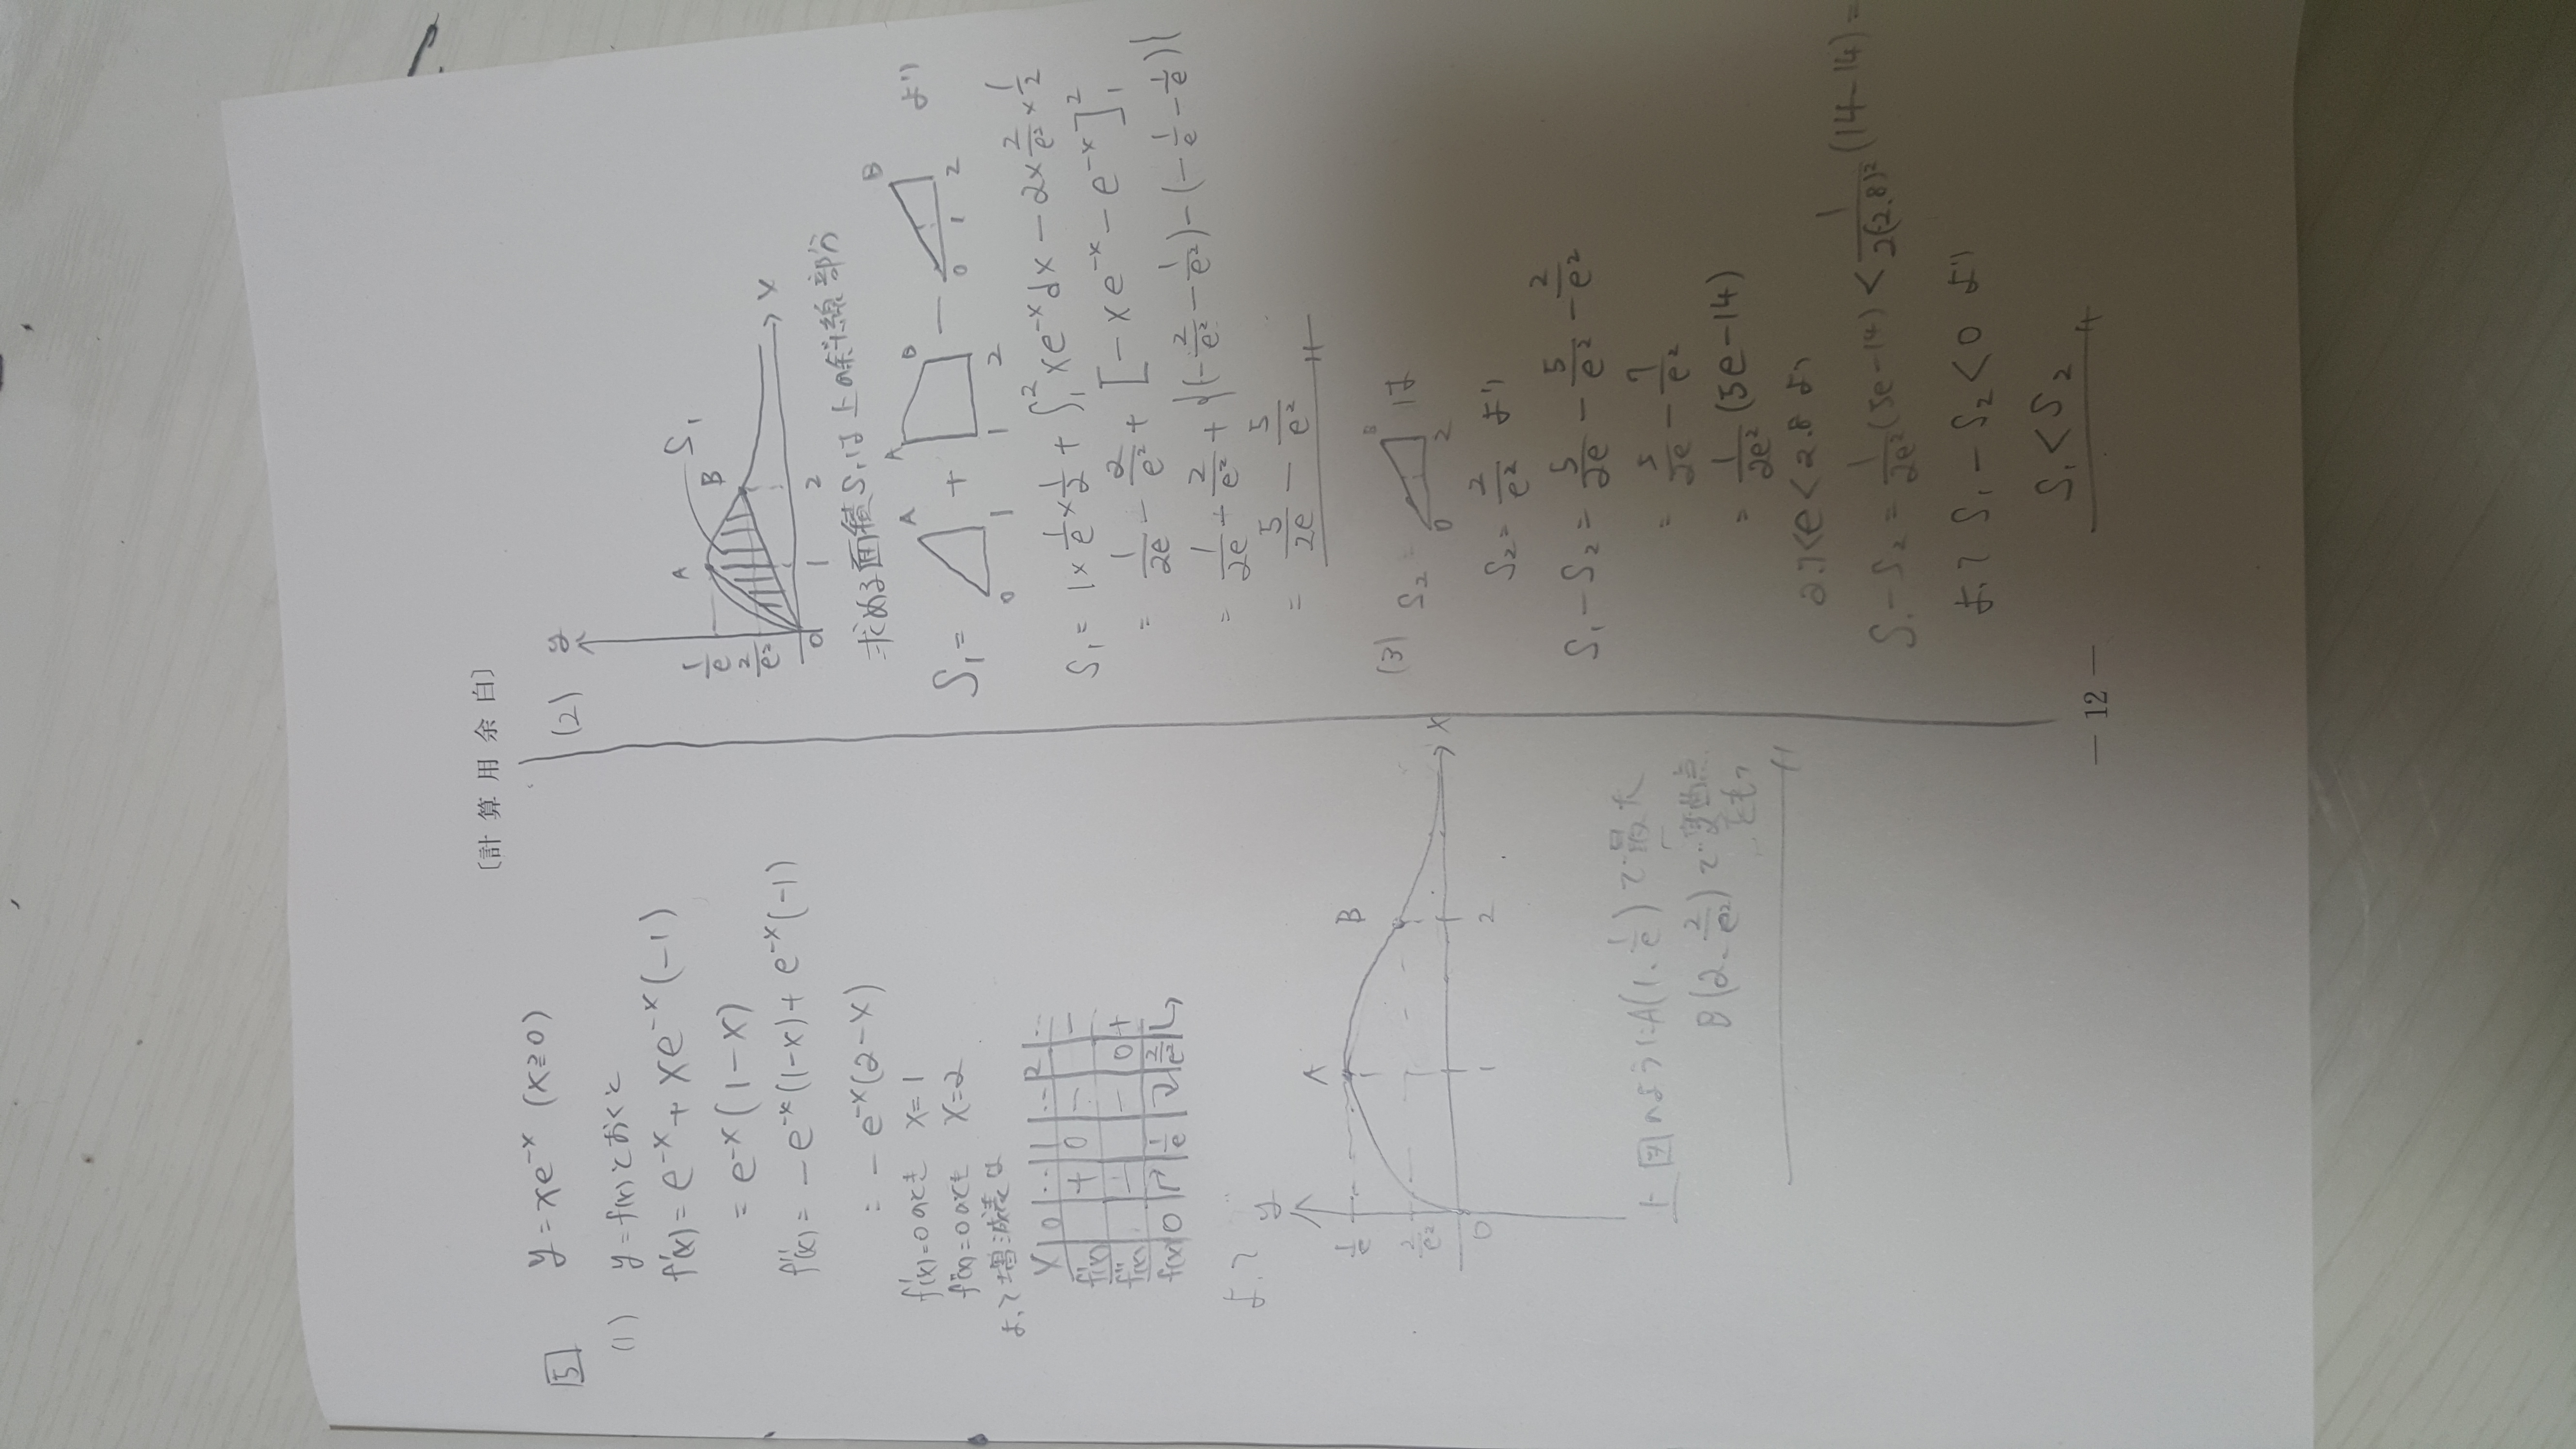 〔計 算 用 余 白〕
5 y = xe^{-x} (x≧0)
(1) y = f(x) とおくと
f'(x) = e^{-x} + xe^{-x}(-1)
= e^{-x}(1-x)
f''(x) = -e^{-x}(1-x) + e^{-x}(-1)
= -e^{-x}(2-x)
f'(x)=0のとき x=1
f''(x)=0のとき x=2
よって増減表は
x | 0 | … | 1 | … | 2 | …
f'(x) | | + | 0 | - | | -
f''(x) | | - | | - | 0 | +
f(x) | 0 | ↱ | 1/e | ⤵ | 2/e² | ↳
よって
y
1/e
2/e²
A
B
0 1 2 x
上図のように A(1, 1/e) で最大
B(2, 2/e²) で変曲点
をもつ
(2)
y
1/e
2/e²
A
B
S₁
0 1 2 x
求める面積S₁は上の斜線部分
S₁ = A 0 1 + A B 1 2 - B 0 1 2 より
S₁ = 1×1/e×1/2 + ∫₁² xe^{-x}dx - 2×2/e²×1/2
= 1/2e - 2/e² + [-xe^{-x} - e^{-x}]₁²
= 1/2e + 2/e² + {(-2/e² - 1/e²) - (-1/e - 1/e)}
= 5/2e - 5/e²
(3) S₂ = B 0 2 は
S₂ = 2/e² より
S₁ - S₂ = 5/2e - 5/e² - 2/e²
= 5/2e - 7/e²
= 1/2e² (5e-14)
2.7<e<2.8 より
S₁ - S₂ = 1/2e² (5e-14) < 1/2(2.8)² (14-14) =
よって S₁ - S₂ < 0 より
S₁ < S₂
— 12 —